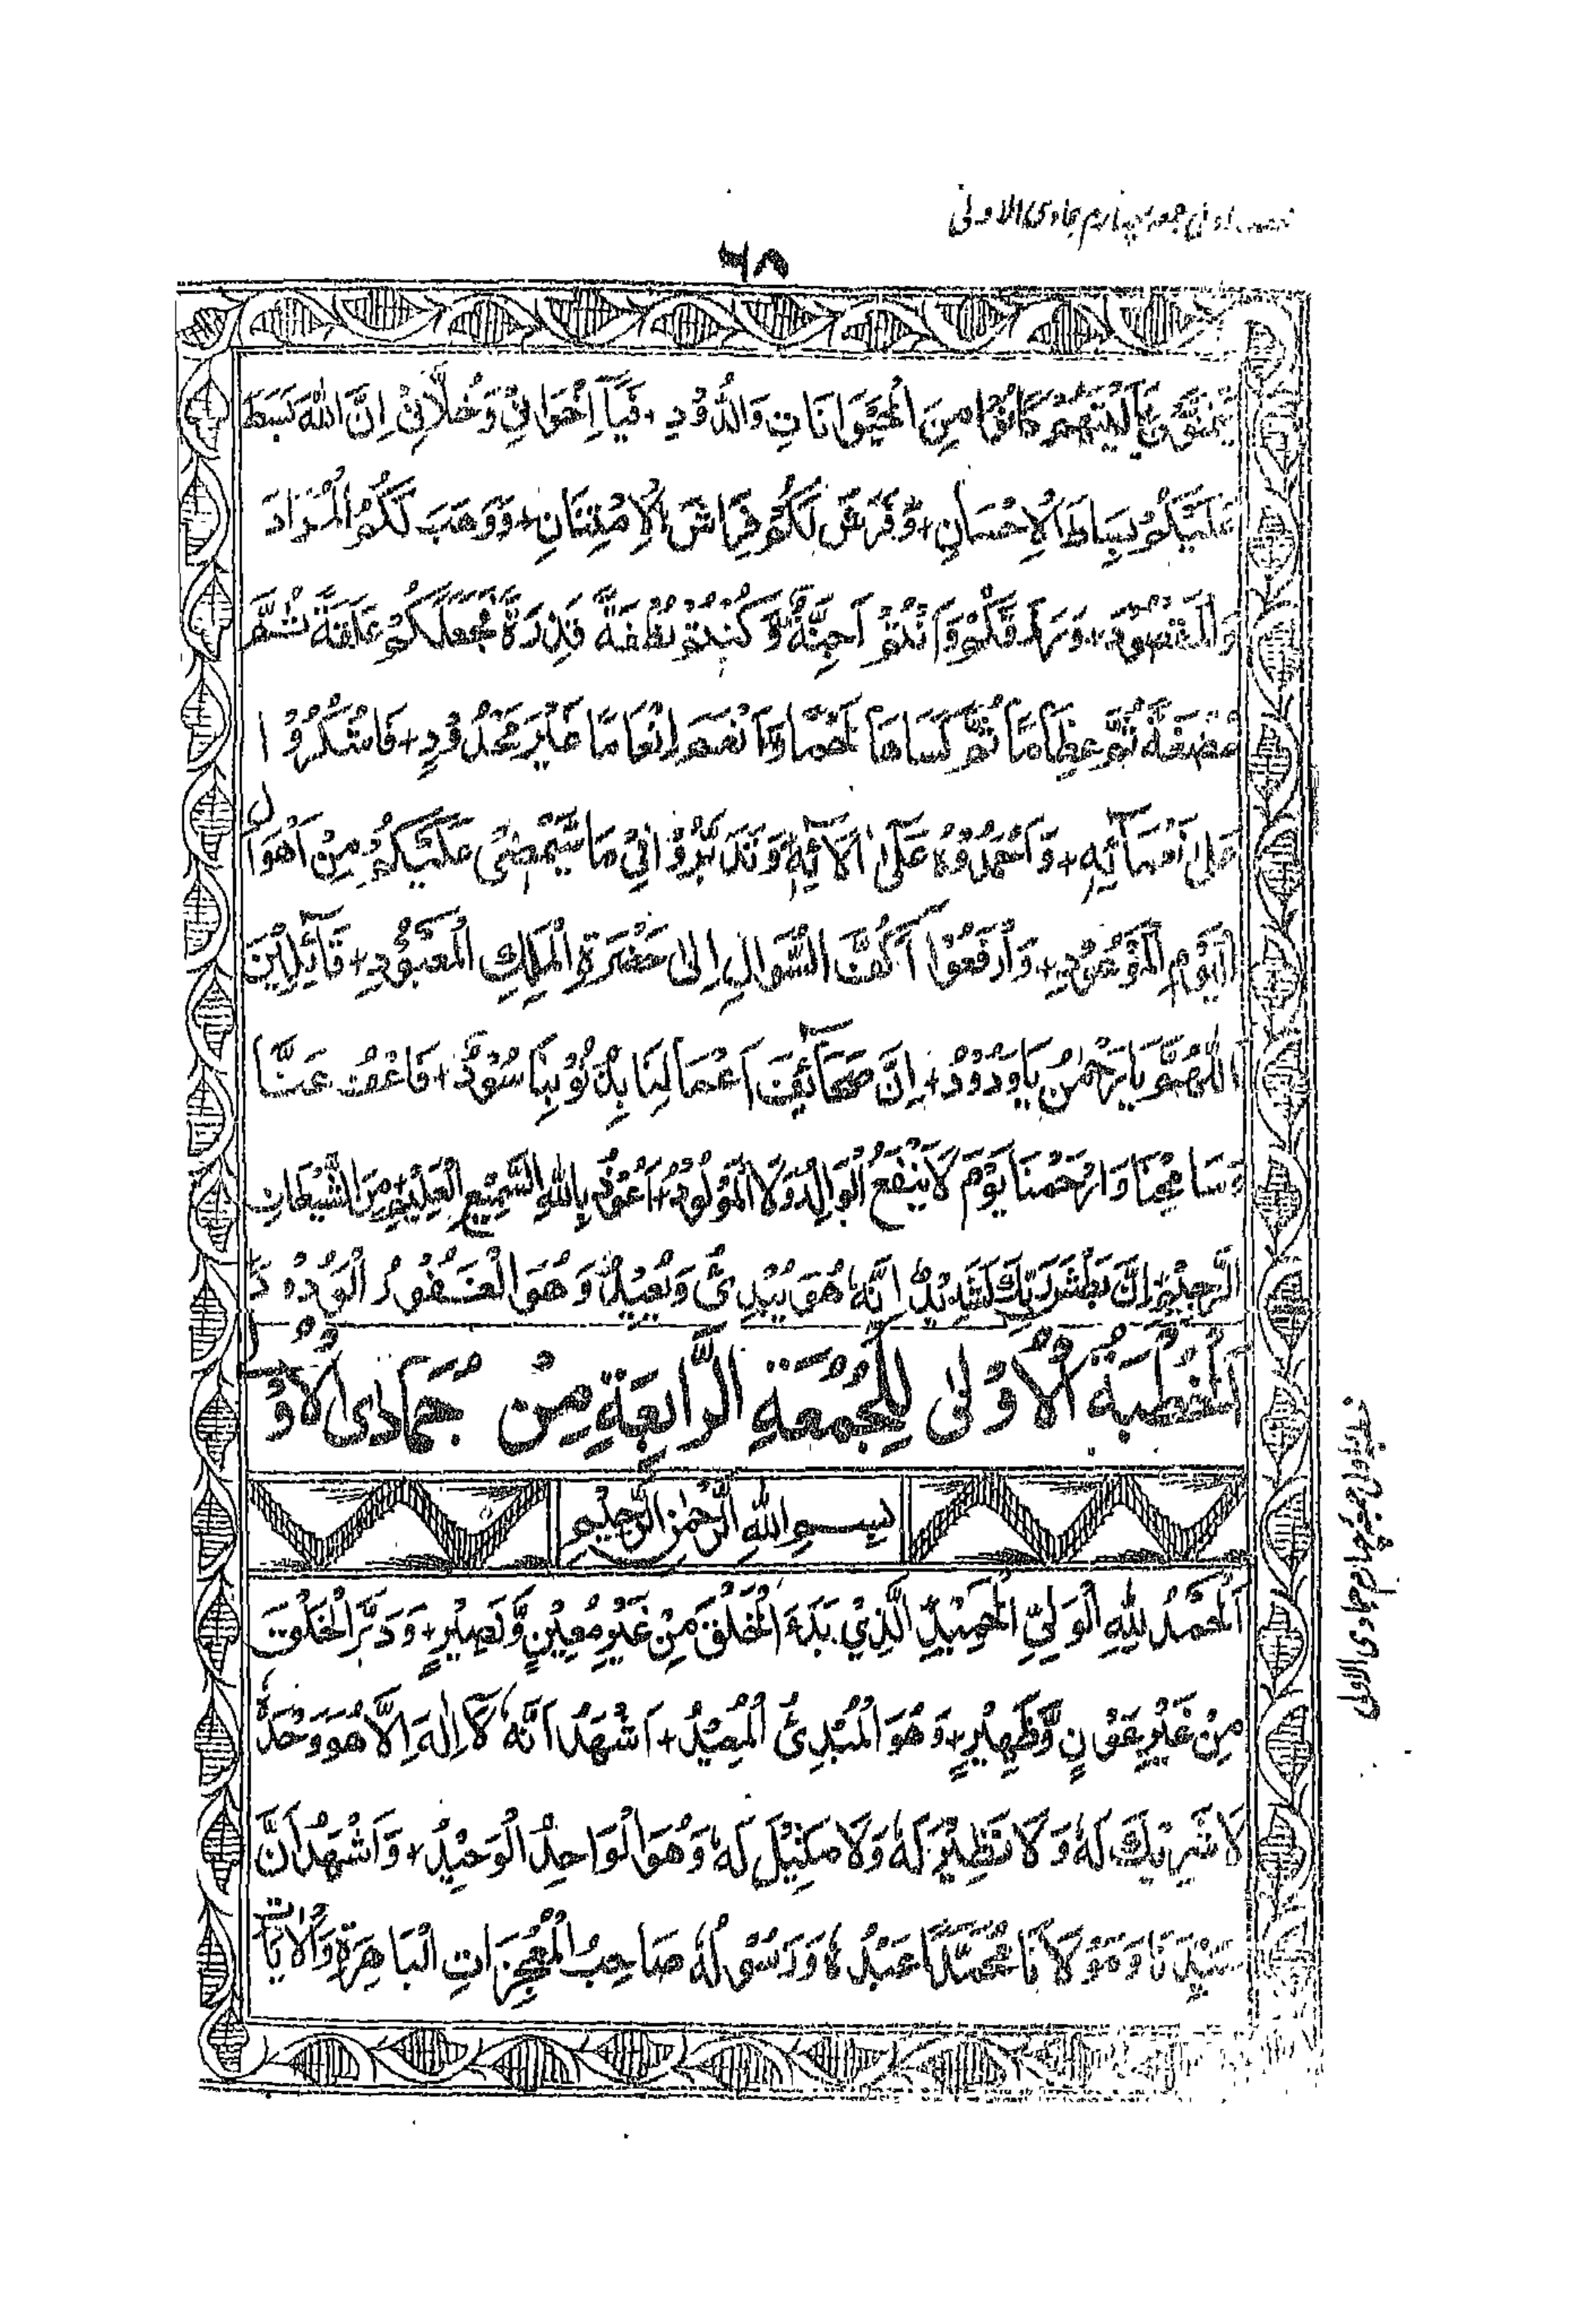 جمعہ چہارم جمادی الاولیٰ
٦٨
يَتَمَنَّوْنَ يَا لَيْتَهُمْ كَانُوْا مِنَ الْحَيْوَانَاتِ وَالدُّوْدِ + فَيَآ اِخْوَانِيْ وَخُلَّانِيْ اِنَّ اللّٰهَ بَسَطَ
عَلَيْكُمْ بِسَاطَ الْاِحْسَانِ + وَّفَرَشَ لَكُمْ فِرَاشَ الْاِمْتِنَانِ + وَوَهَبَ لَكُمُ الْمُرَادَ
وَالْمَقْصُوْدَ + وَرَزَقَكُمْ وَاَنْتُمْ اَجِنَّةٌ وَّكُنْتُمْ نُطْفَةً قَذِرَةً فَجَعَلَكُمْ عَلَقَةً ثُمَّ
مُضْغَةً ثُمَّ عِظَامًا ثُمَّ كَسَاهَا لَحْمًا وَّاَنْعَمَ اِنْعَامًا غَيْرَ مَحْدُوْدٍ + فَاشْكُرُوْا
عَلٰى نَعْمَآئِهٖ + وَاحْمَدُوْهُ عَلٰى اٰلَآئِهٖ وَتَدَبَّرُوْا فِيْ مَا سَيَمْضِيْ عَلَيْكُمْ مِنْ اَهْوَالِ
الْيَوْمِ الْمَوْعُوْدِ + وَارْفَعُوْا اَكُفَّ السُّوَالِ اِلٰى حَضْرَةِ الْمَلِكِ الْمَعْبُوْدِ + قَآئِلِيْنَ
اَللّٰهُمَّ يَا رَحْمٰنُ يَا وَدُوْدُ + اِنَّ صَحَآئِفَ اَعْمَالِنَا بِذُنُوْبِنَا سُوْدٌ + فَاعْفُ عَنَّا
وَسَامِحْنَا وَارْحَمْنَا يَوْمَ لَا يَنْفَعُ الْوَالِدُ وَلَا الْمَوْلُوْدُ + اَعُوْذُ بِاللّٰهِ السَّمِيْعِ الْعَلِيْمِ مِنَ الشَّيْطَانِ
الرَّجِيْمِ اِنَّ بَطْشَ رَبِّكَ لَشَدِيْدٌ اِنَّهٗ هُوَ يُبْدِئُ وَيُعِيْدُ وَهُوَ الْغَفُوْرُ الْوَدُوْدُ
اَلْخُطْبَةُ الْاُوْلٰى لِلْجُمُعَةِ الرَّابِعَةِ مِنْ جُمَادَى الْاُوْلٰى
بِسْمِ اللّٰهِ الرَّحْمٰنِ الرَّحِيْمِ
اَلْحَمْدُ لِلّٰهِ الْوَلِيِّ الْحَمِيْدِ الَّذِيْ بَدَءَ الْخَلْقَ مِنْ غَيْرِ مُعِيْنٍ وَّنَصِيْرٍ + وَدَبَّرَ الْخَلْقَ
مِنْ غَيْرِ عَوْنٍ وَّظَهِيْرٍ + وَهُوَ الْمُبْدِئُ الْمُعِيْدُ + اَشْهَدُ اَنَّهٗ لَآ اِلٰهَ اِلَّا هُوَ وَحْدَهٗ
لَا شَرِيْكَ لَهٗ وَلَا نَظِيْرَ لَهٗ وَلَا مَثِيْلَ لَهٗ وَهُوَ الْوَاحِدُ الْوَحِيْدُ + وَاَشْهَدُ اَنَّ
سَيِّدَنَا وَمَوْلَانَا مُحَمَّدًا عَبْدُهٗ وَرَسُوْلُهٗ صَاحِبُ الْمُعْجِزَاتِ الْبَاهِرَةِ وَالْاٰيَاتِ
جمادی الاولیٰ